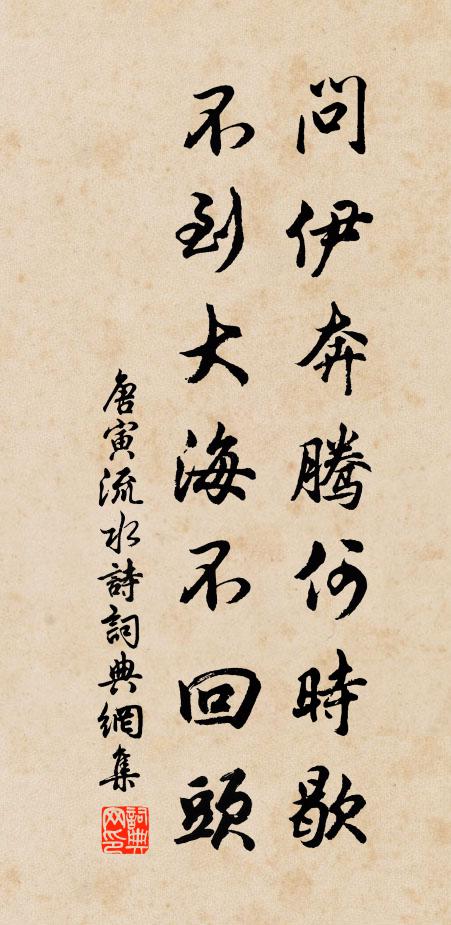 問伊奔騰何時歇
不到大海不回頭
唐寅流水詩詞典網集
詞典網印